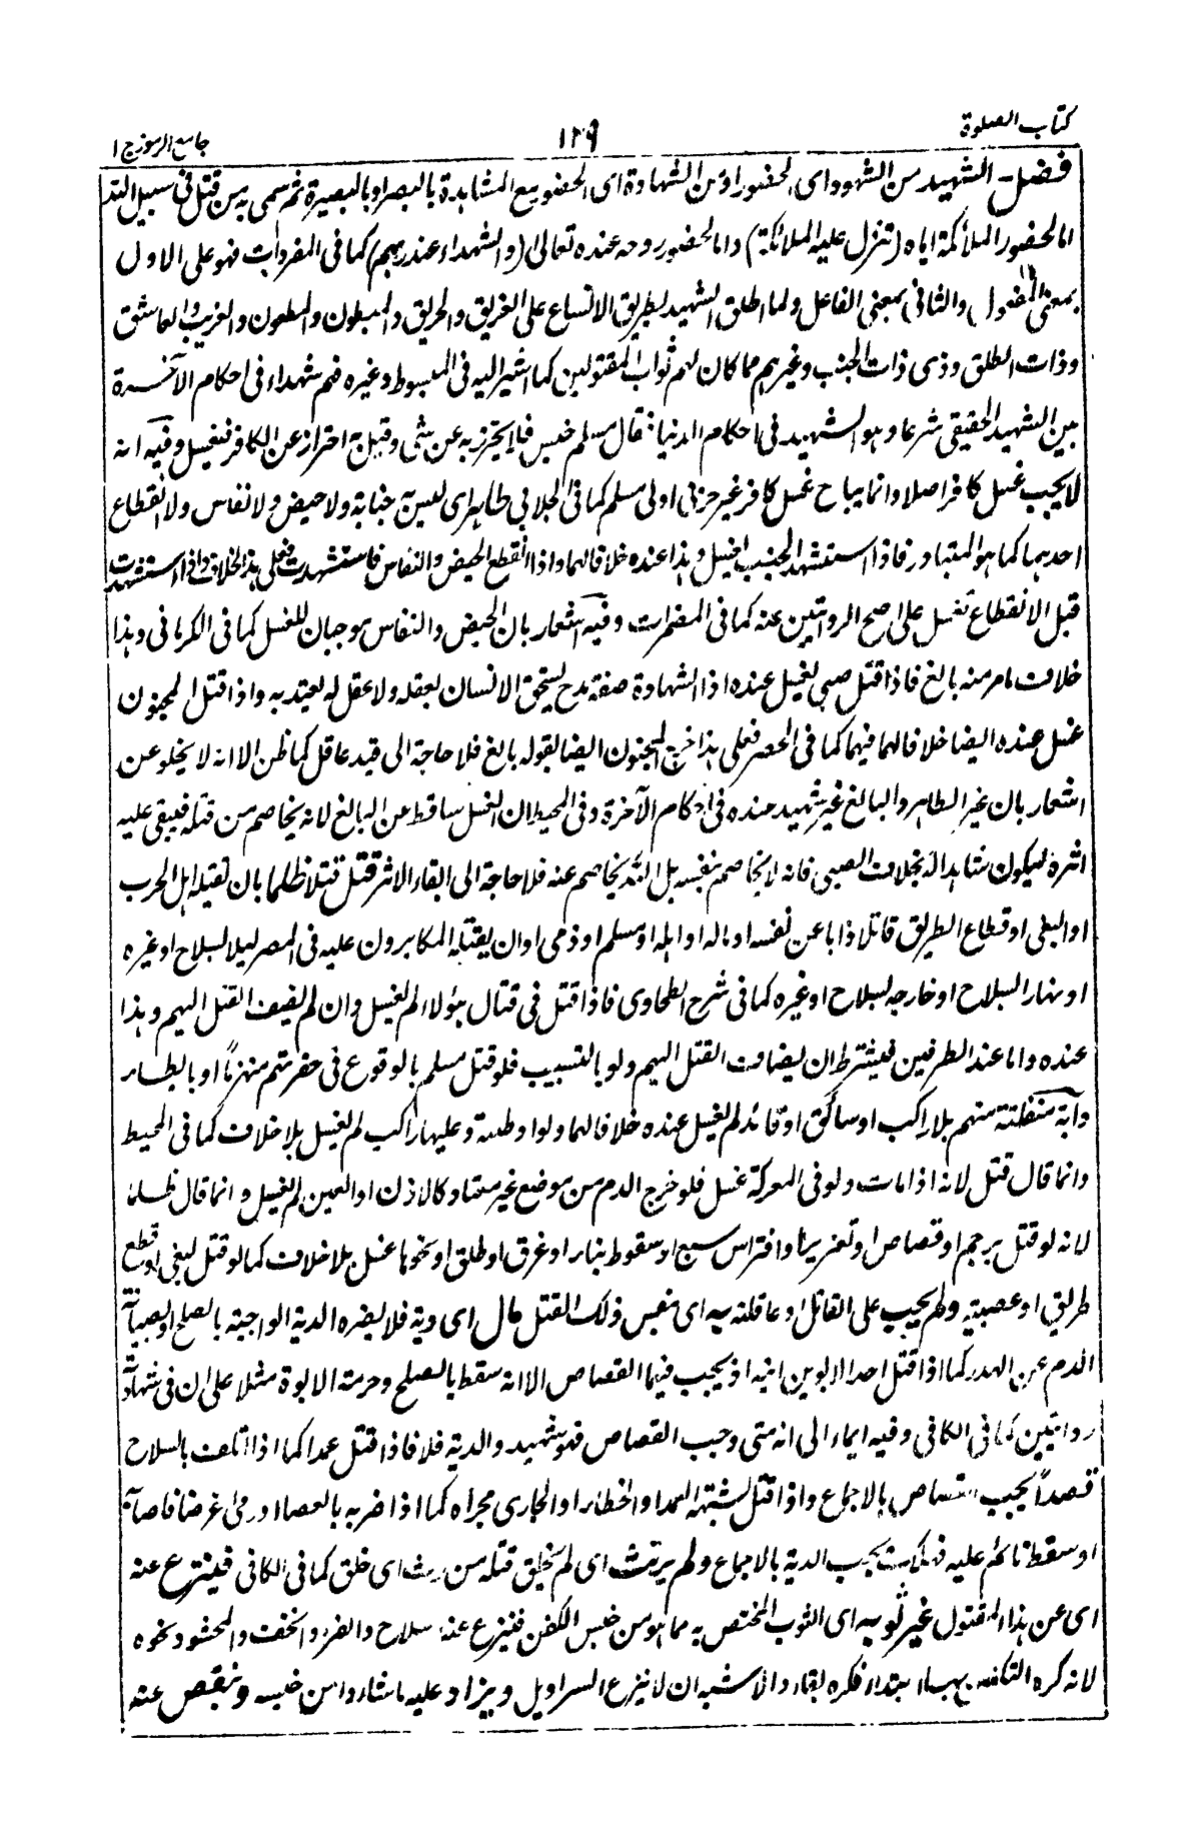 كتاب الصلوة
١٢٩
جامع الرموز ج ١
فصل - الشهيد من الشهود اى الحضور او من الشهادة اى الحضور مع المشاهدة بالبصر او بالبصيرة ثم سمى به من قتل فى سبيل الله
اما لحضور الملائكة اياه (تتنزل عليه الملائكة) واما لحضور روحه عنده تعالى (والشهداء عند ربهم) كما فى المفردات فهو على الاول
بمعنى المفعول والثانى بمعنى الفاعل ولما اطلق الشهيد بطريق الاتساع على الغريق والحريق والمبطون والمطعون والغريب والعاشق
وذات الطلق وذى ذات الجنب وغيرهم مما كان لهم ثواب المقتولين كما اشير اليه فى المبسوط وغيره فهم شهداء فى احكام الآخرة
بين الشهيد الحقيقى شرعا وهو الشهيد فى احكام الدنيا فقال مسلم جنس فلا يحترز به عن شئ وقيل به احتراز عن الكافر فيغسل وفيه انه
لا يجب غسل كافر اصلا وانما يباح غسل كافر غير حربى له ولى مسلم كما فى الجلابى طاهر اى ليس به جنابة ولا حيض ولا نفاس ولا انقطاع
احدهما كما هو المتبادر فاذا استشهد الجنب يغسل وهذا عنده خلافا لهما واذا انقطع الحيض والنفاس فاستشهدت فعلى هذا الخلاف واذا استشهدت
قبل الانقطاع تغسل على اصح الروايتين عنه كما فى المضمرات وفيه اشعار بان الحيض والنفاس موجبان للغسل كما فى الكرمانى وهذا
خلاف ما مر منه بالغ فاذا قتل صبى يغسل عنده اذ الشهادة صفة مدح يستحق الانسان بعقله ولا عقل له يعتد به واذا قتل المجنون
غسل عنده ايضا خلافا لهما فيهما كما فى الحصر فعلى هذا خرج المجنون ايضا بقوله بالغ فلا حاجة الى قيد عاقل كما ظن الا انه لا يخلو عن
اشعار بان غير الطاهر والبالغ غير شهيد عنده فى احكام الآخرة وفى المحيط ان الغسل ساقط عن البالغ لانه يخاصم من قتله فيبقى عليه
اثره ليكون شاهدا له بخلاف الصبى فانه لا يخاصم بنفسه بل الله يخاصم عنه فلا حاجة الى ابقاء الاثر قتل قتلا ظلما بان يقتله اهل الحرب
او البغى او قطاع الطريق قاتلا ذابا عن نفسه او ماله او اهله او مسلم او ذمى او ان يقتله المكابرون عليه فى المصر ليلا بسلاح او غيره
او نهارا بسلاح او خارجه بسلاح او غيره كما فى شرح الطحاوى فاذا قتل فى قتال هؤلاء لم يغسل وان لم يضف القتل اليهم وهذا
عنده واما عند الطرفين فيشترط ان يضاف القتل اليهم ولو بالتسبيب فلو قتل مسلم بالوقوع فى حفرتهم منهزما او بالطار
دابة منفلتة منهم بلا راكب او سائق او قائد لم يغسل عنده خلافا لهما ولو اوطئته وعليها راكب لم يغسل بلا خلاف كما فى المحيط
وانما قال قتل لانه اذا مات ولو فى المعركة غسل فلو خرج الدم من موضع غير معتاد كالاذن او العين لم يغسل وانما قال ظلما
لانه لو قتل برجم او قصاص او تعزير او افتراس سبع او سقوط بناء او غرق او طلق او نحوها غسل بلا خلاف كما لو قتل لبغى او قطع
طريق او عصبية ولم يجب على القاتل او عاقلته به اى بنفس ذلك القتل مال اى دية فلا يضره الدية الواجبة بالصلح او بصيانة
الدم عن الهدر كما اذا قتل احد الابوين ابنه اذ يجب فيهما القصاص الا انه سقط بالصلح وحرمة الابوة مثلا على ان فى شهادته
روايتين كما فى الكافى وفيه ايماء الى انه متى وجب القصاص فهو شهيد والدية فلا فاذا قتل عمدا كما اذا اتلف بالسلاح
قصدا يجب القصاص بالاجماع واذا قتل لشبهة العمد او الخطاء او الجارى مجراه كما اذا ضربه بالعصا او رمى غرضا فاصابه
او سقط نائم عليه فهلكت يجب الدية بالاجماع ولم يرتث اى لم يخلق قتله من رث اى خلق كما فى الكافى فينزع عنه
اى عن هذا المقتول غير ثوبه اى الثوب المختص به مما هو من جنس الكفن فينزع عنه سلاح والفرو والخف والمحشو ونحوه
لانه كره التكفين بها ابتداء فكره بقاء والاشبه ان لا ينزع السراويل ويزاد عليه ما شاؤا من جنسه وينقص عنه